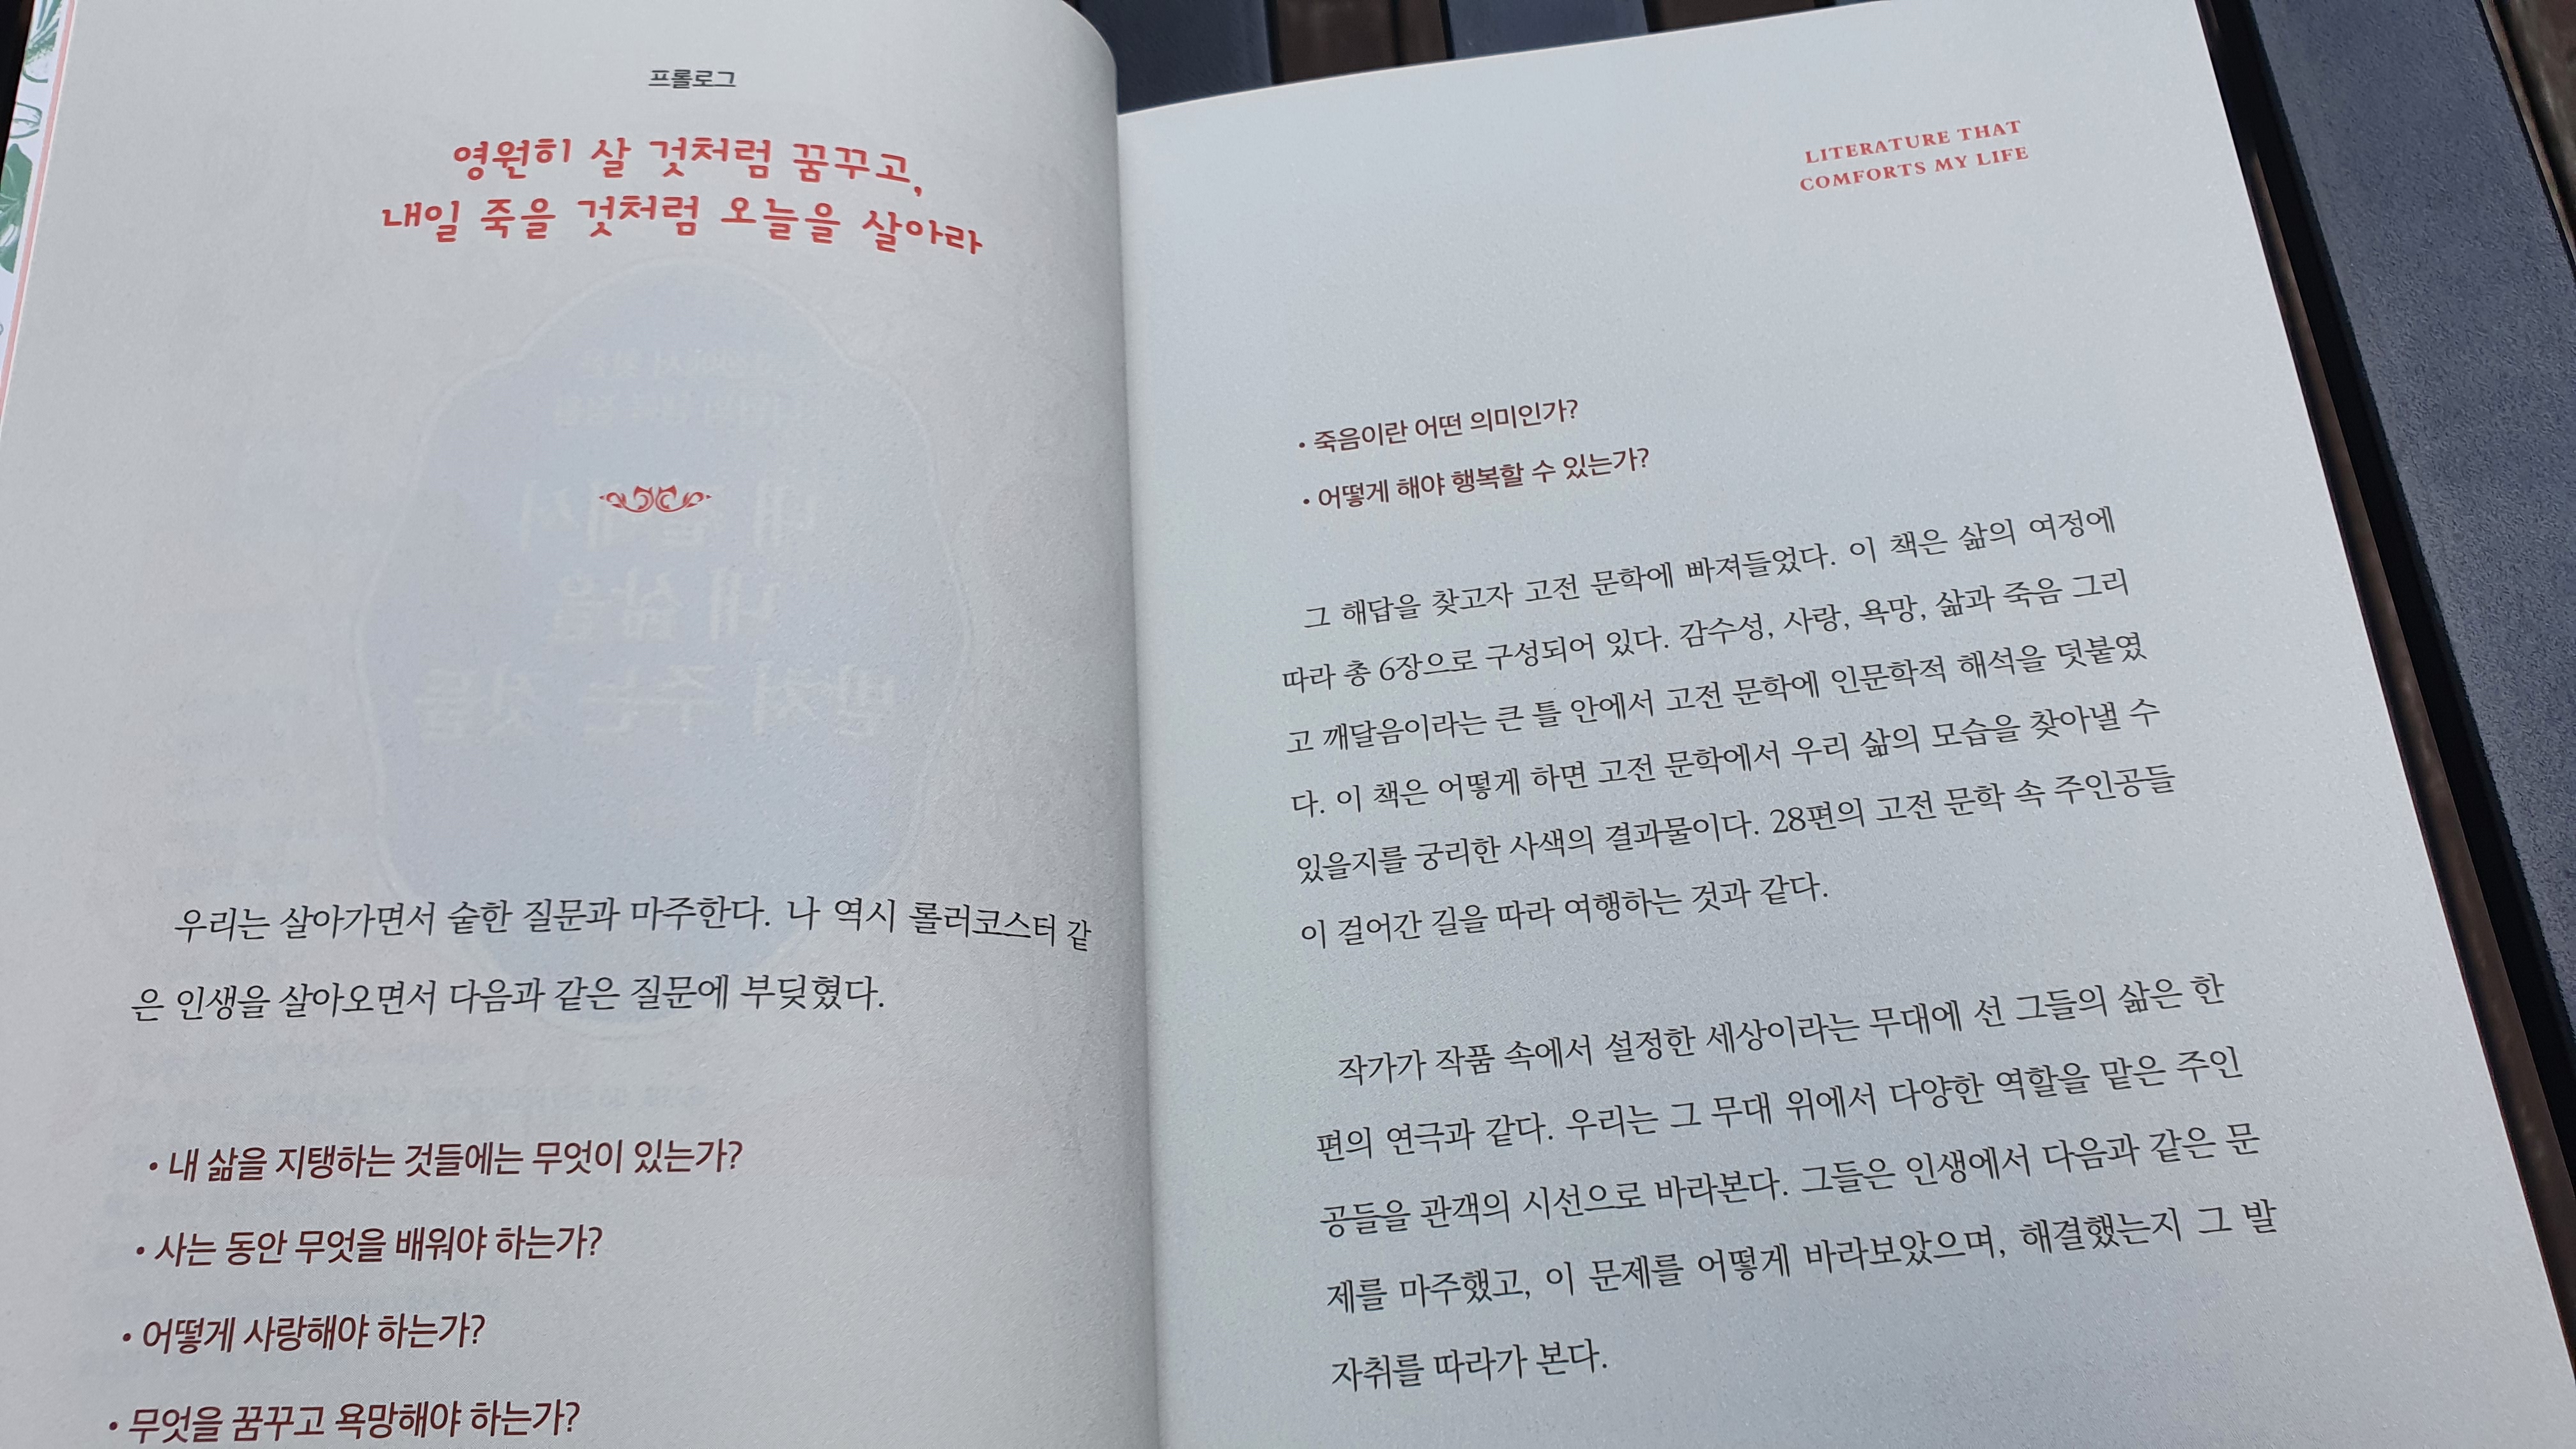 프롤로그
영원히 살 것처럼 꿈꾸고,
내일 죽을 것처럼 오늘을 살아라
우리는 살아가면서 숱한 질문과 마주한다. 나 역시 롤러코스터 같
은 인생을 살아오면서 다음과 같은 질문에 부딪혔다.
• 내 삶을 지탱하는 것들에는 무엇이 있는가?
• 사는 동안 무엇을 배워야 하는가?
• 어떻게 사랑해야 하는가?
• 무엇을 꿈꾸고 욕망해야 하는가?
LITERATURE THAT
COMFORTS MY LIFE
• 죽음이란 어떤 의미인가?
• 어떻게 해야 행복할 수 있는가?
그 해답을 찾고자 고전 문학에 빠져들었다. 이 책은 삶의 여정에
따라 총 6장으로 구성되어 있다. 감수성, 사랑, 욕망, 삶과 죽음 그리
고 깨달음이라는 큰 틀 안에서 고전 문학에 인문학적 해석을 덧붙였
다. 이 책은 어떻게 하면 고전 문학에서 우리 삶의 모습을 찾아낼 수
있을지를 궁리한 사색의 결과물이다. 28편의 고전 문학 속 주인공들
이 걸어간 길을 따라 여행하는 것과 같다.
작가가 작품 속에서 설정한 세상이라는 무대에 선 그들의 삶은 한
편의 연극과 같다. 우리는 그 무대 위에서 다양한 역할을 맡은 주인
공들을 관객의 시선으로 바라본다. 그들은 인생에서 다음과 같은 문
제를 마주했고, 이 문제를 어떻게 바라보았으며, 해결했는지 그 발
자취를 따라가 본다.